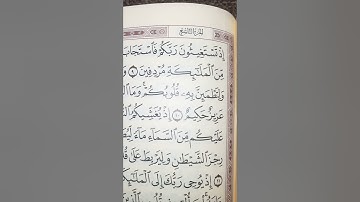 الجزء التاسع
إِذْ تَسْتَغِيثُونَ رَبَّكُمْ فَٱسْتَجَابَ
مِّنَ ٱلْمَلَٰٓئِكَةِ مُرْدِفِينَ ٩
وَلِتَطْمَئِنَّ بِهِۦ قُلُوبُكُمْ وَمَا ٱل
عَزِيزٌ حَكِيمٌ ١٠ إِذْ يُغَشِّيكُمُ
عَلَيْكُم مِّنَ ٱلسَّمَآءِ مَآءً لِّيُطَ
رِجْزَ ٱلشَّيْطَٰنِ وَلِيَرْبِطَ عَلَىٰ قُ
١١ إِذْ يُوحِى رَبُّكَ إِلَى ٱلْمَلَٰٓئِكَ